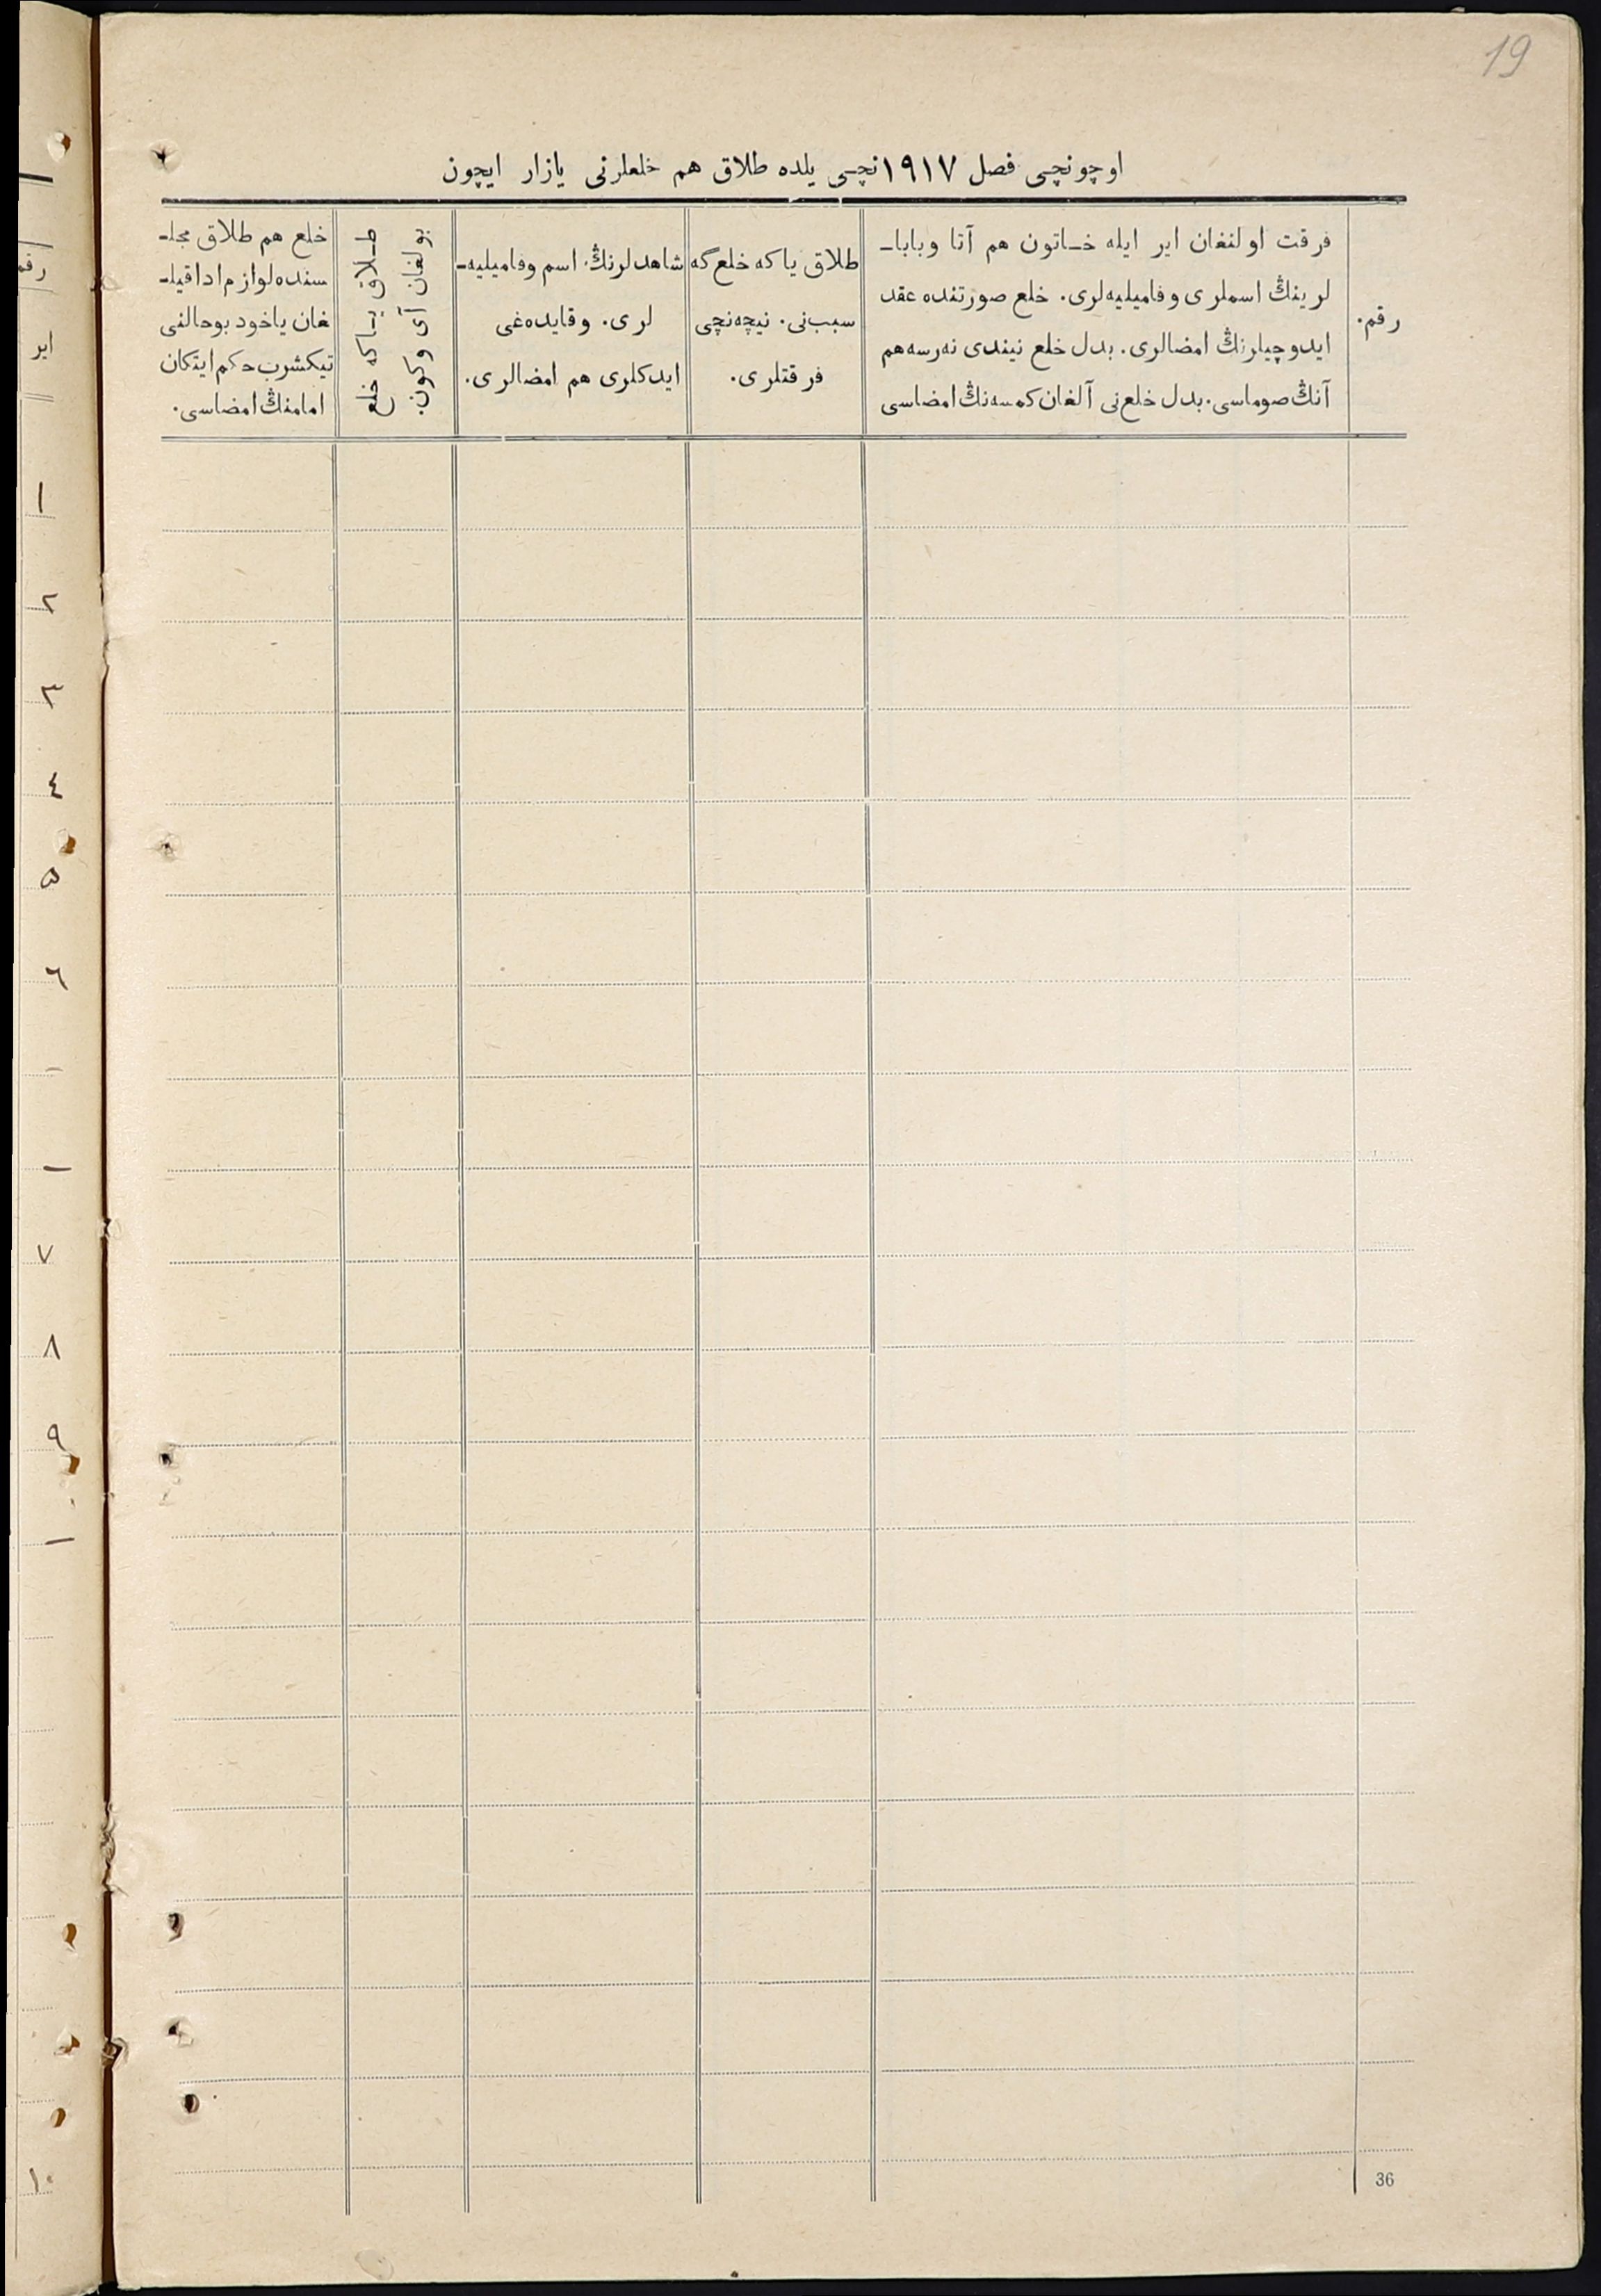 19
اوچونچی فصل ١٩١٧نچی يلده طلاق هم خلعلرنی يازار ايچون
رقم.
فرقت اولنغان اير ايله خـاتون هم آتا وباباـ
لرينڭ اسملری وفاميليهلری. خلع صورتنده عقد
ايدوچيلرنڭ امضالری. بدل خلع نيندی نهرسه هم
آنڭ صوماسی. بدل خلعنی آلغان كمسهنڭ امضاسی
طلاق ياكه خلعگه
سببنی. نيچهنچی
فرقتلری.
شاهدلرنڭ اسم وفاميليهـ
لری. وقايدهغی
ايدكلری هم امضالری.
طـلاق يـاكه خلع
بولغان آی وكون.
خلع هم طلاق مجلـ
سنده لوازم ادا قيلـ
غان ياخود بوحالنی
تيكشرب حكم ايتكان
امامنڭ امضاسی.
رقم
اير
١
٢
٣
٤
٥
٦
٧
٨
٩
١٠
36